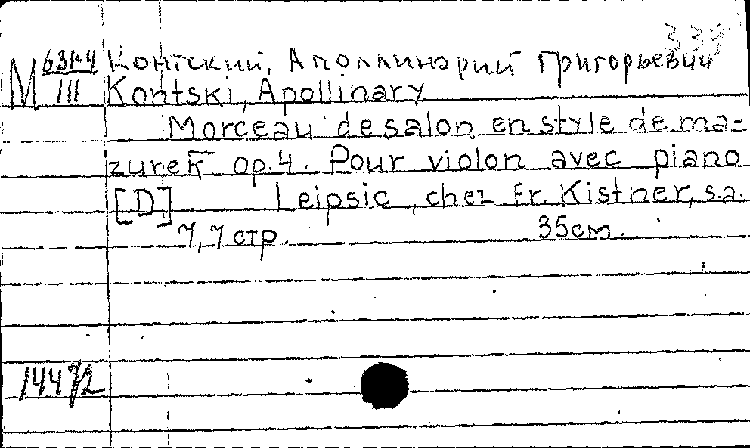 339
М 631-4 / III Контский, Аполлинарий Григорьевич
Kontski, Apollinary
Morceau de salon en style de ma=
zurek op.4. Pour violon avec piano
[D] Leipsic, chez Fr. Kistner, s.a.
7,7 стр. 35см.
14472